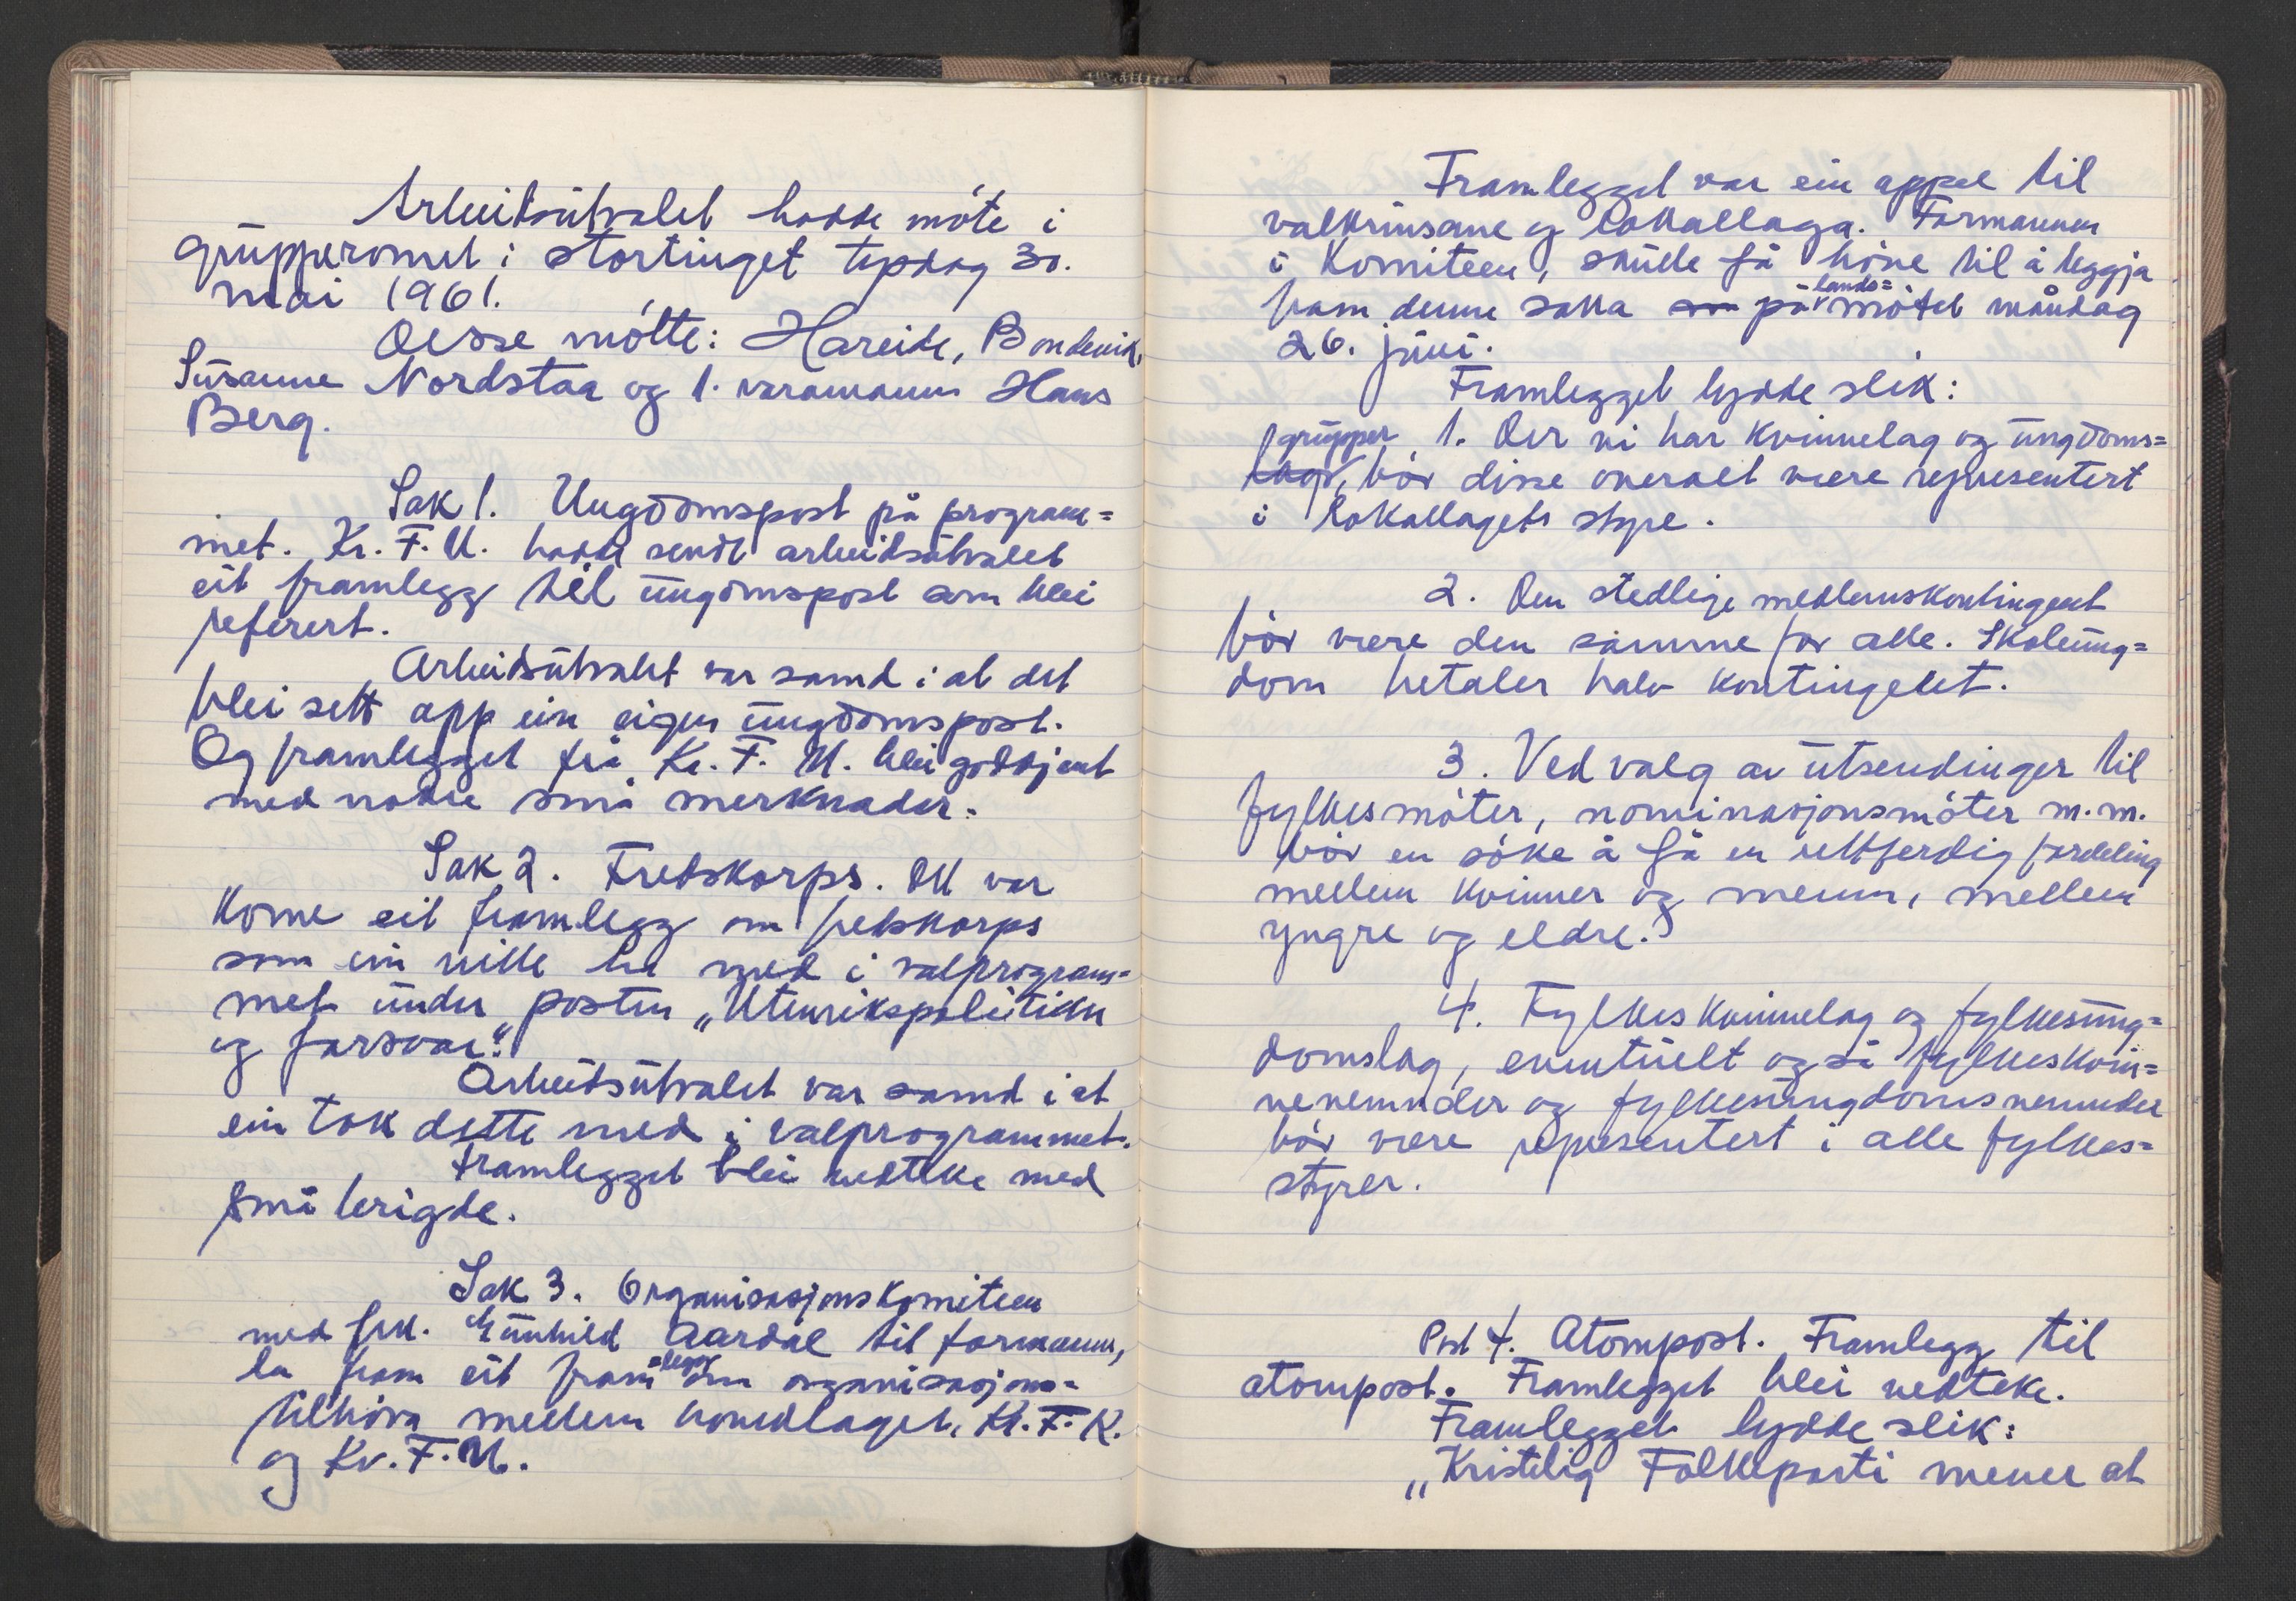 Arbeidsutvalet hadde möte i
grupperomet i stortinget tysdag 30.
mai 1961.
Desse mötte: Hareide, Bondevik,
Susanne Nordstaa og 1. varamann Hans
Berg.
Sak 1. Ungdomspost på program=
met. Kr. F. U. hadde sendt arbeidsutvalet
eit framlegg til ungdomspost som blei
referert.
Arbeidsutvalet var samd i at det
blei sett opp ein eigen ungdomspost.
Og framlegget frå Kr. F. U. blei godkjent
med nokre små merknader.
Sak 2. Fredskorps. Det var
kome eit framlegg om fredskorps
som ein ville ha med i valprogram=
met under posten „Utenrikspolitikk
og forsvar."
Arbeidsutvalet var samd i at
ein tok dette med i valprogrammet.
Framlegget blei vedteke med
små brigde.
Sak 3. Organisasjonskomiteen
med frk. Gunhild Aardal til formann,
la fram eit fram=legg om organisasjons=
tilhöva mellem hovedlaget, Kr. F. K.
og Kr. F. U.
Framlegget var ein appel til
valkrinsane og lokallaga. Formannen
i komiteen, skulle få höve til å leggja
fram denne saka på lands=mötet måndag
26. juni.
Framlegget lydde slik:
1. Der vi har kvinnelag og ungdoms=
grupper bör disse overalt være representert
i lokallagets styre.
2. Den stedlige medlemskontingent
bör være den samme for alle. Skoleung=
dom betaler halv kontingent.
3. Ved valg av utsendinger til
fylkesmöter, nominasjonsmöter m.m.
bör en söke å få en rettferdig fordeling
mellem kvinner og menn, mellem
yngre og eldre.
4. Fylkeskvinnelag og fylkesung=
domslag, eventuelt også fylkeskvin=
nenemnder og fylkesungdomsnemnder
bör være representert i alle fylkes=
styrer.
Post 4. Atompost. Framlegg til
atompost. Framlegget blei vedteke.
Framlegget lydde slik:
„Kristelig Folkeparti mener at